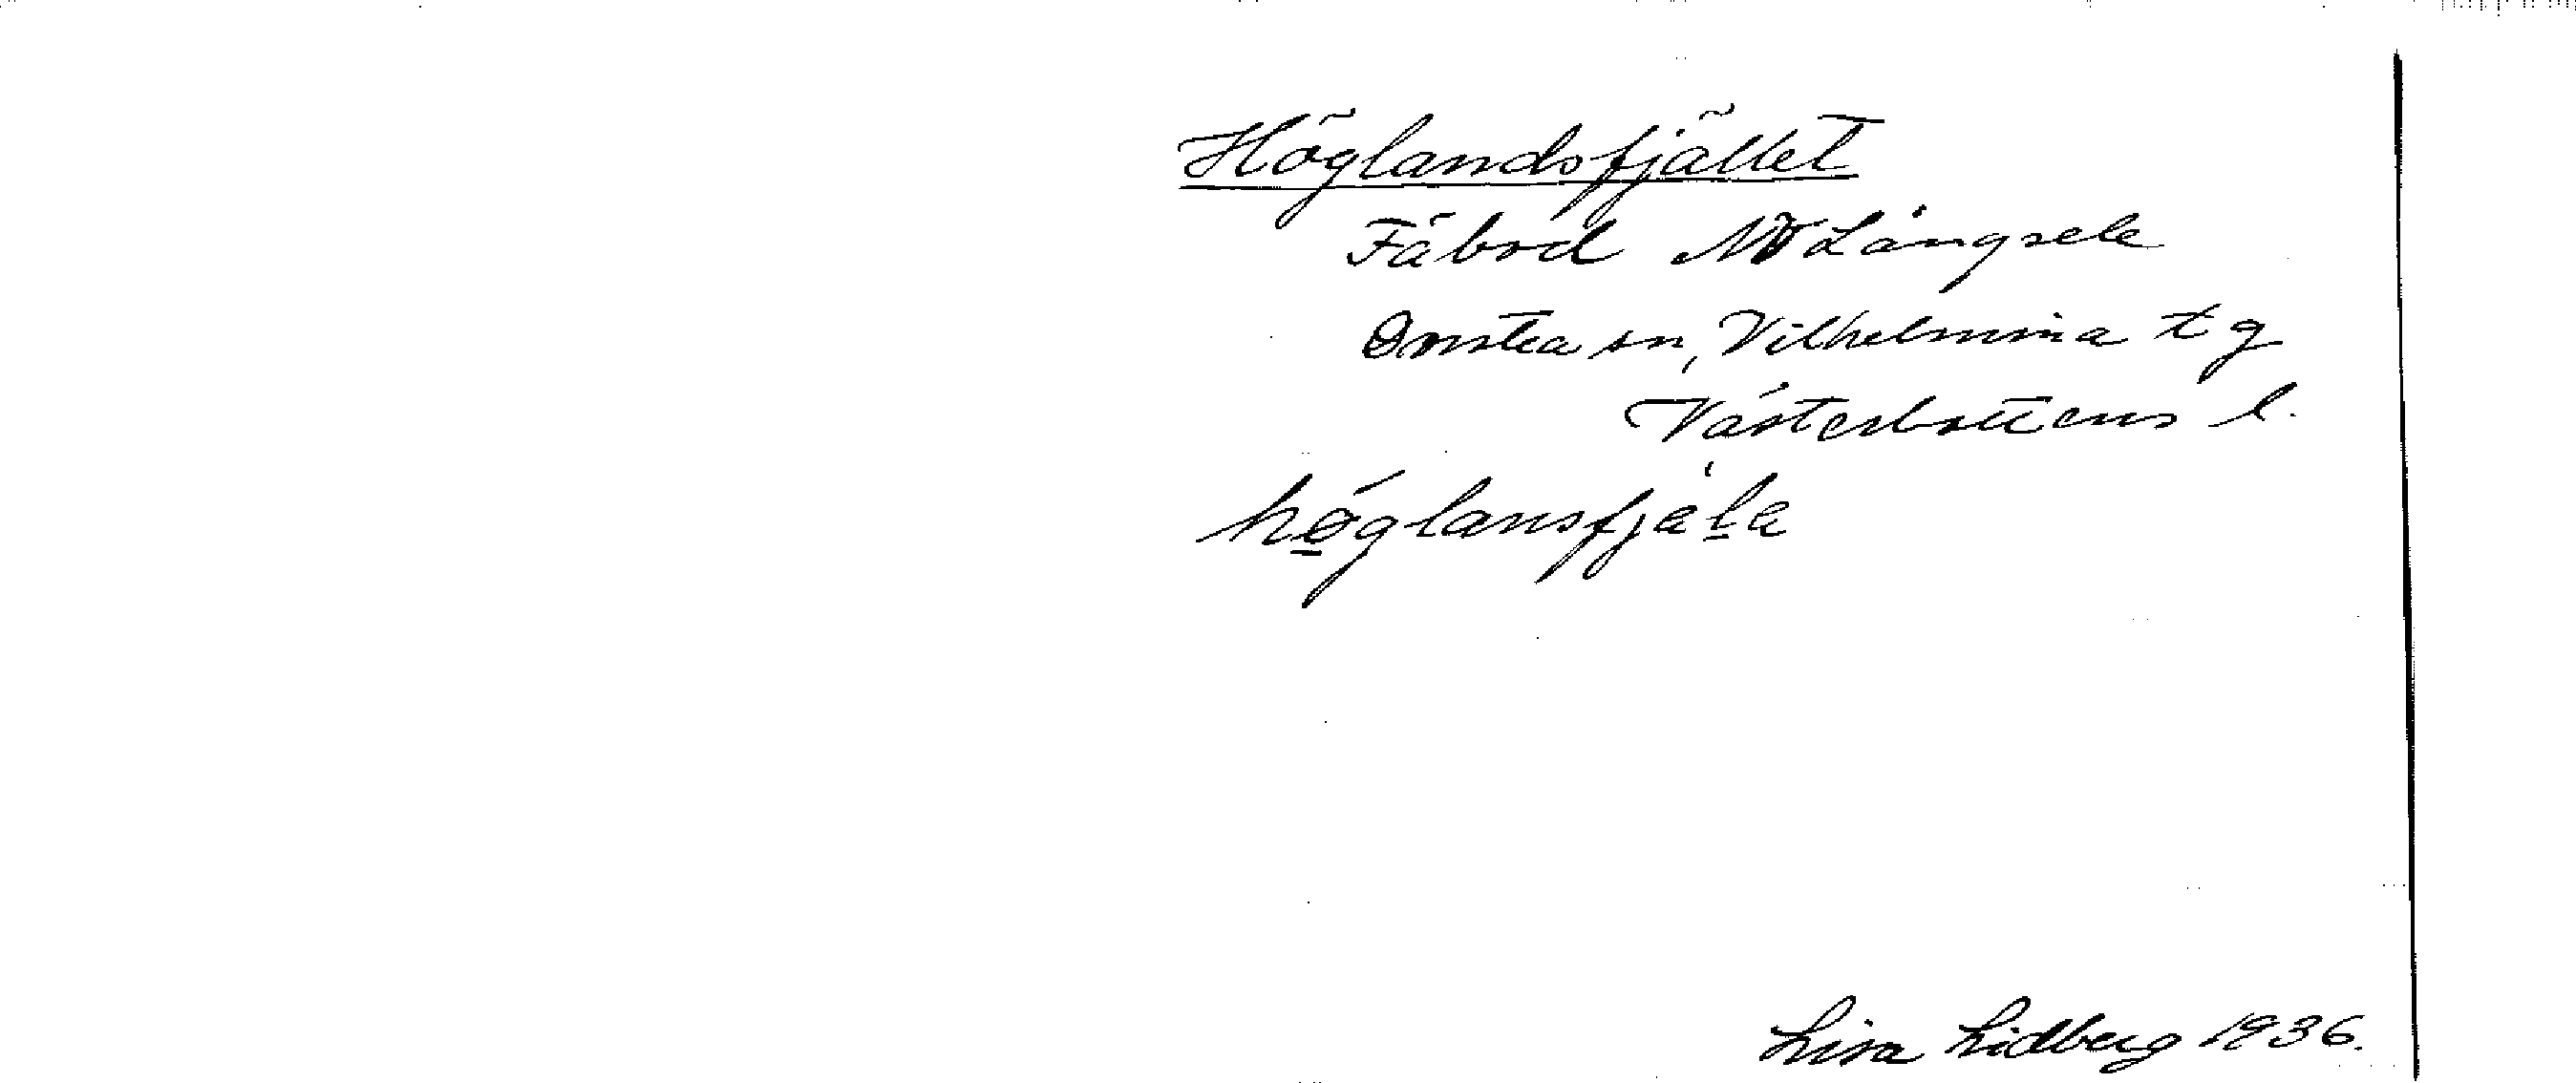 Höglandsfjället
Fäbod NV Långsele
Dorotea sn, Vilhelmina tg
Västerbottens l.
hö̲́glansfjäl̲a
Lisa Lidberg 1936.